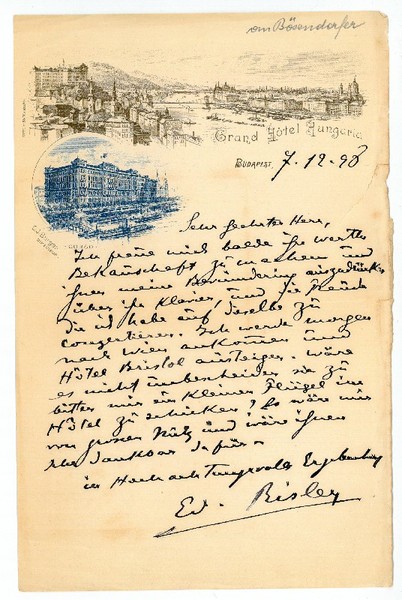 om Bösendorfer
Grand Hôtel Hungaria
BUDAPEST, 7.12.98
Sehr geehrter Herr,
Ich freue mich balde Ihre werthe
Bekanschaft zu machen und
Ihnen meine Bewünderung auszudrücken
über ihr Klavier, und die Freude
die ich habe auf dieselbe zu
conzertieren. Ich werde morgen
nach Wien ankommen und
Hôtel Bristol absteigen. Wäre
es nicht unbescheiden sie zu
bitten mir ein kleines Flügel im
Hôtel zu schicken? Es wäre mir
von grossen Nütz und wäre ihnen
sehr dankbar dafür.
in Hochachtungsvolle Ergebenheit
Ed. Risler